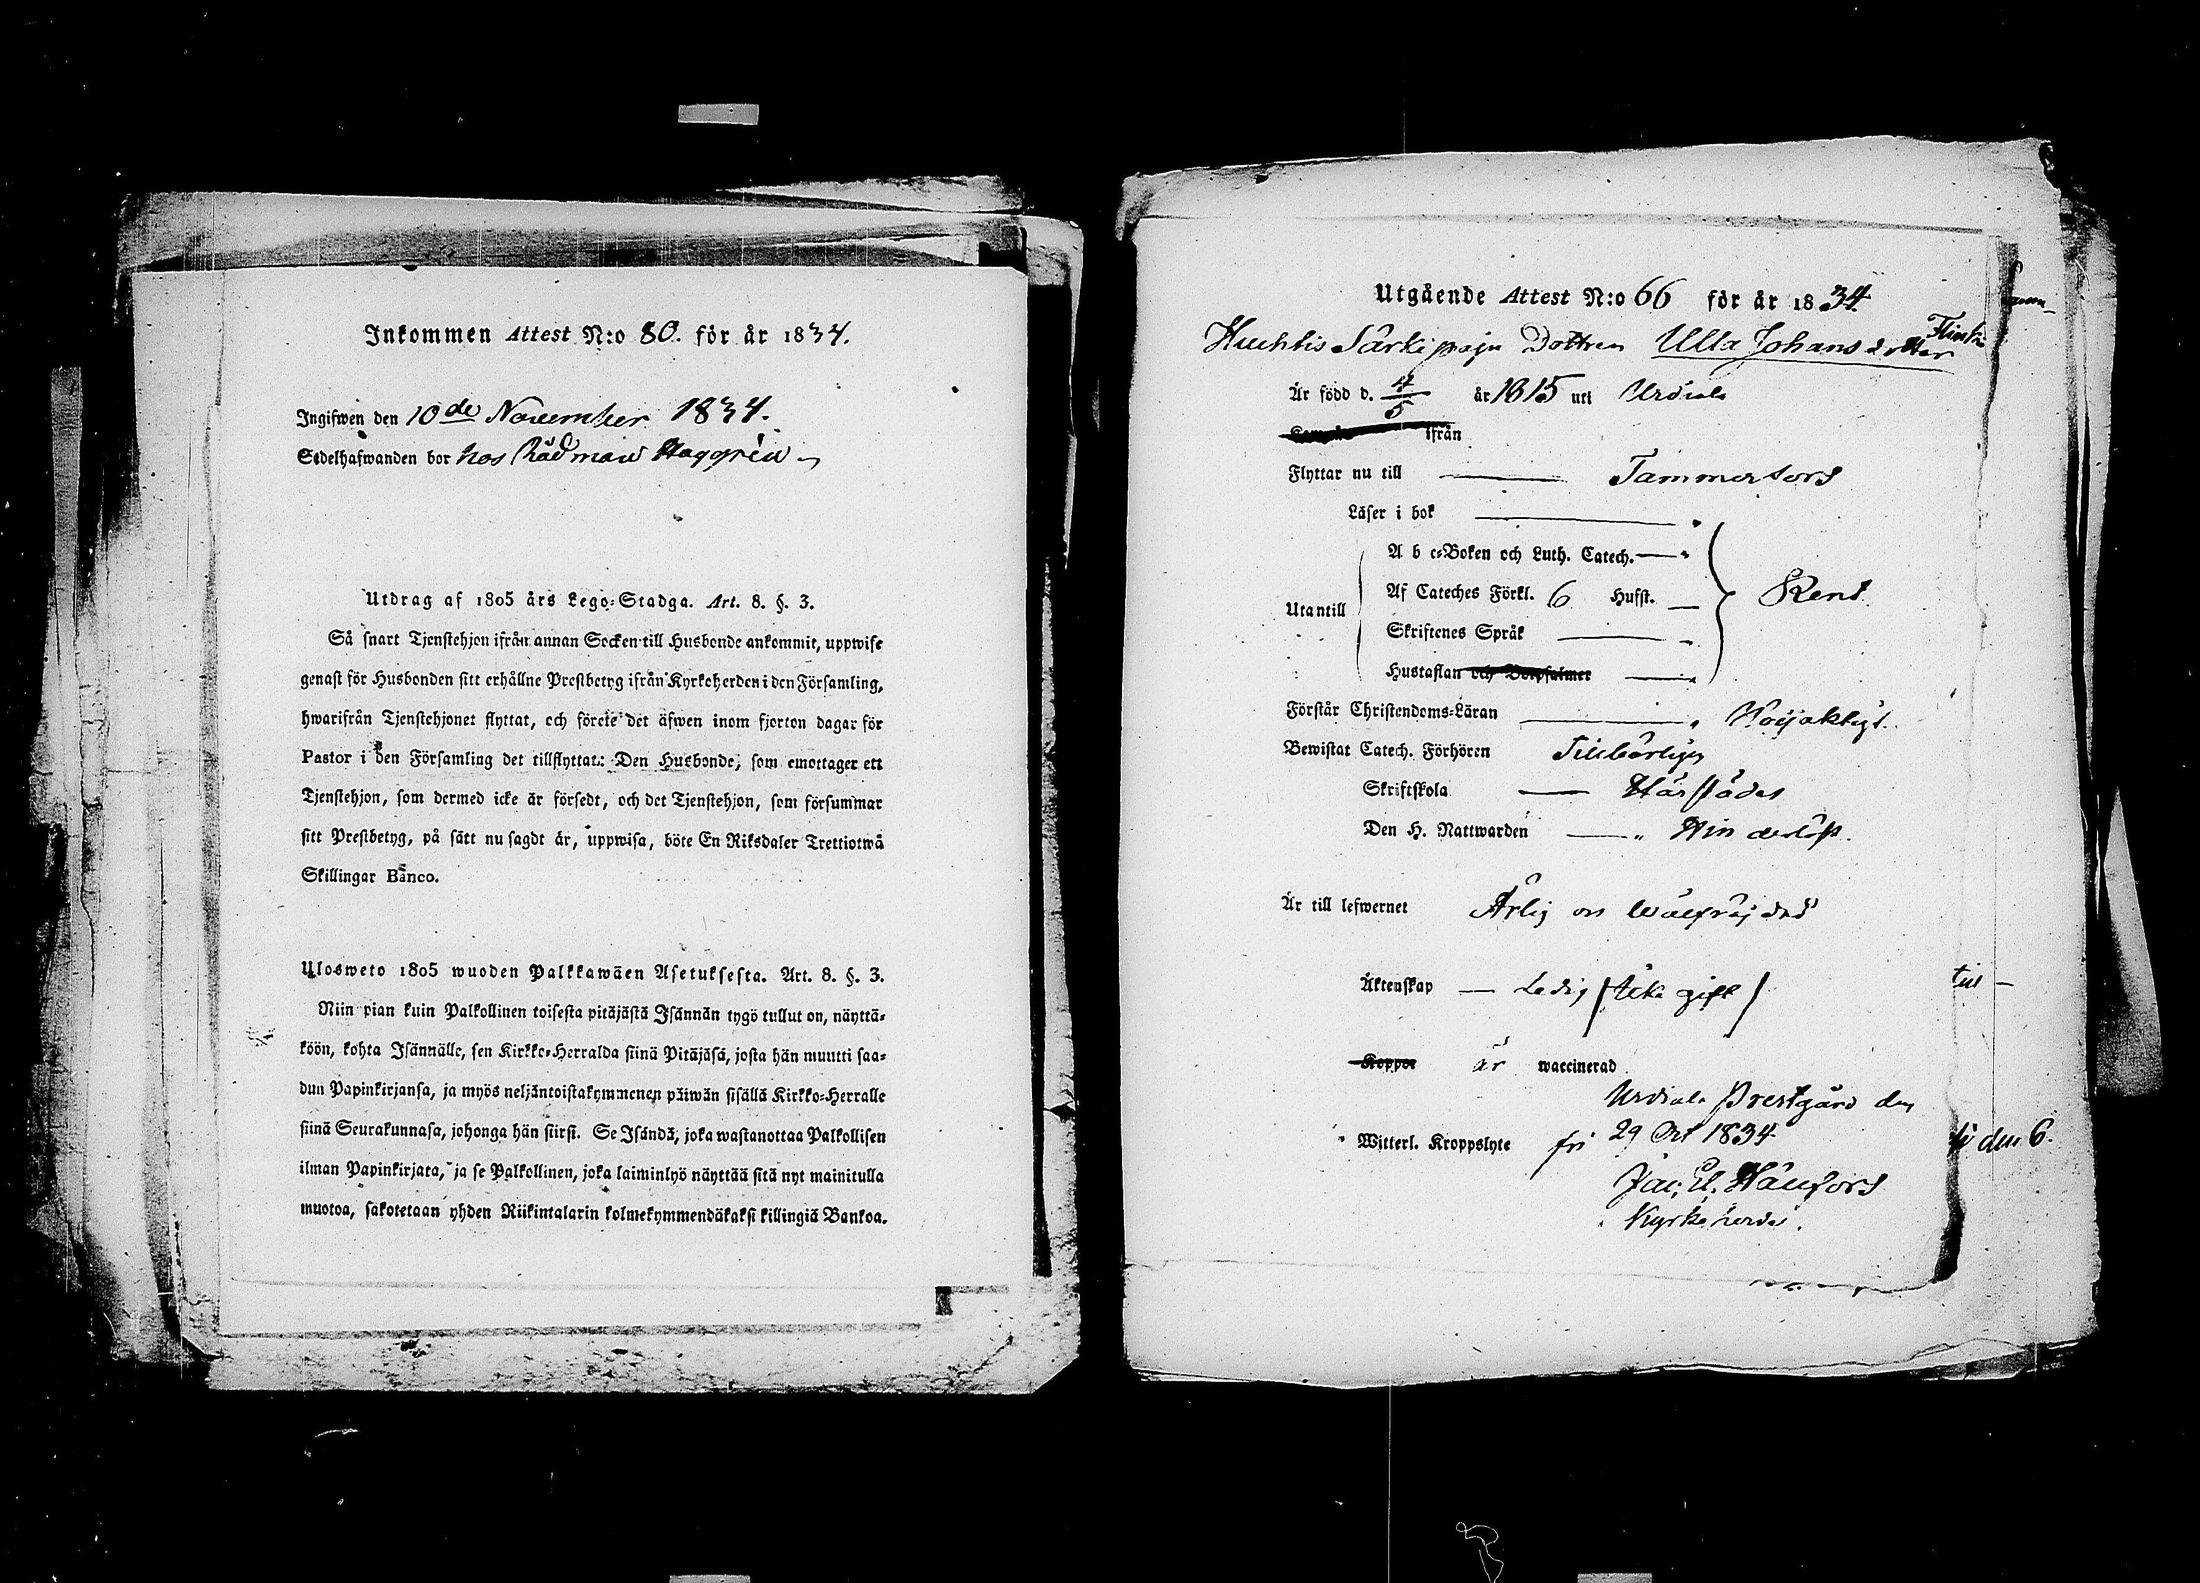 Inkommen Attest N:o 80. för år 1834.
Ingifwen den 10de November 1834.
Sedelhafwanden bor hos Rådman Haggrén
Utdrag af 1805 års Lego-Stadga. Art. 8. §. 3.
Så snart Tjenstehjon ifrån annan Socken till Husbonde ankommit, uppwise
genast för Husbonden sitt erhållne Prestbetyg ifrån Kyrkoherden i den Församling,
hwarifrån Tjenstehjonet flyttat, och förete det äfwen inom fjorton dagar för
Pastor i den Församling det tillflyttat: Den Husbonde, som emottager ett
Tjenstehjon, som dermed icke är försedt, och det Tjenstehjon, som försummar
sitt Prestbetyg, på sätt nu sagdt är, uppwisa, böte En Riksdaler Trettiotwå
Skillingar Banco.
Ulosweto 1805 wuoden Palkkawäen Asetuksesta. Art. 8. §. 3.
Niin pian kuin Palkollinen toisesta pitäjästä Isännän tygö tullut on, näyttä-
köön, kohta Isännälle, sen Kirkko-Herralda siinä Pitäjäsä, josta hän muutti saa-
dun Papinkirjansa, ja myös neljäntoistakymmenen päiwän sisällä Kirkko-Herralle
siinä Seurakunnasa, johonga hän siirsi. Se Isändä, joka wastanottaa Palkollisen
ilman Papinkirjata, ja se Palkollinen, joka laiminlyö näyttää sitä nyt mainitulla
muotoa, sakotetaan yhden Riikintalarin kolmekymmendäkaksi killingiä Bankoa.
Utgående Attest N:o 66 för år 1834.
Huhtis Särki Dottren Ulla Johansdotter Flink
Är född d. 4/5 år 1815 uti Urdiala
ifrån
Flyttar nu till Tammerfors
Läser i bok
A b c-Boken och Luth. Catech.
Utantill Af Cateches Förkl. 6 Hufst. Rent
Skriftenes Språk
Hustaflan och Botpsalmer
Förstår Christendoms-Läran Nöijaktigt.
Bewistat Catech. Förhören Tillbörligen
Skriftskola Härstädes
Den H. Nattwarden Hinderlöst.
Är till lefwernet Ärlig och wälfräjdad
Äktenskap Ledig (icke gift)
till
Koppor är waccinerad
Urdiala Prestgård den
Witterl. Kroppslyte fri 29 Oct 1834.
den 6.
Jac. El. Hänfors
Kyrkoherde.